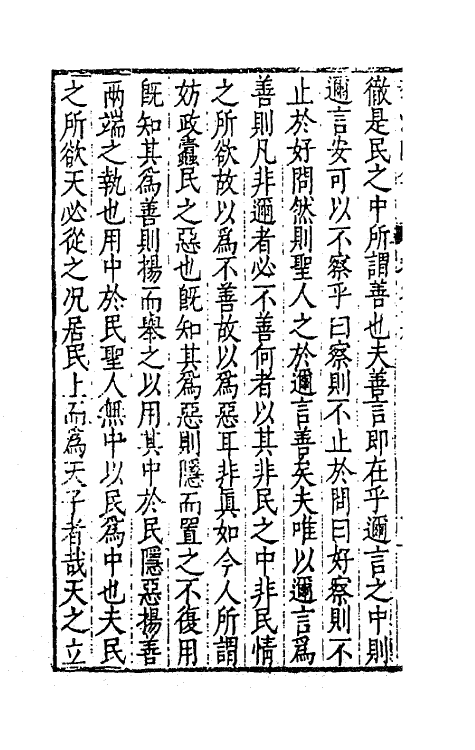 徹是民之中所謂善也夫善言即在乎邇言之中則
邇言安可以不察乎曰察則不止於問曰好察則不
止於好問然則聖人之於邇言善矣夫唯以邇言爲
善則凡非邇者必不善何者以其非民之中非民情
之所欲故以爲不善故以爲惡耳非真如今人所謂
妨政蠹民之惡也旣知其爲惡則隱而置之不復用
旣知其爲善則揚而舉之以用其中於民隱惡揚善
兩端之執也用中於民聖人無中以民爲中也夫民
之所欲天必從之况居民上而爲天子者哉天之立